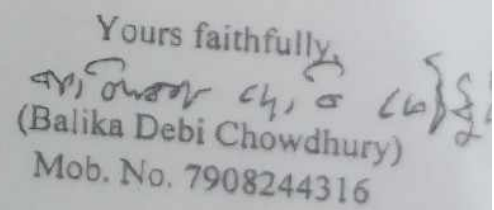 Yours faithfully,
(Balika Debi Chowdhury)
Mob. No. 7908244316